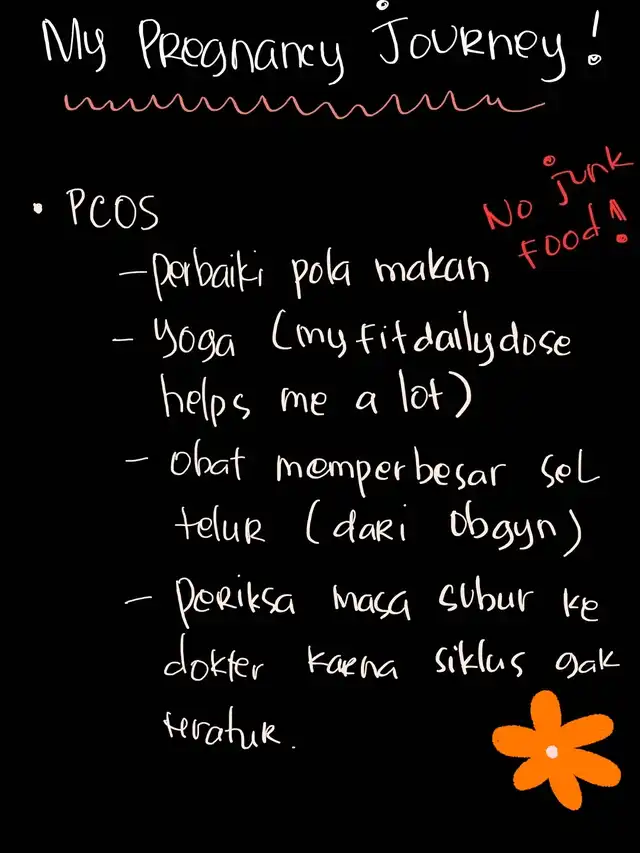 My Pregnancy Journey!
• PCOS
No junk
food!
- perbaiki pola makan
- yoga (myfitdailydose
helps me a lot)
- obat memperbesar sel
telur (dari obgyn)
- periksa masa subur ke
dokter karna siklus gak
teratur.